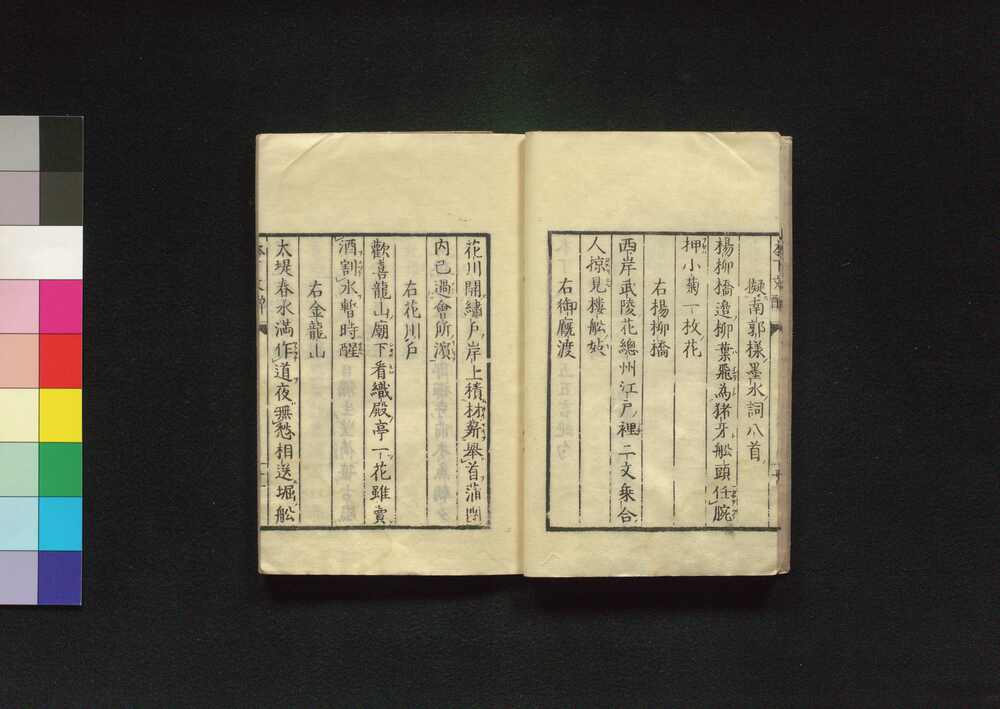 擬南郭樣墨水詞八首
楊柳橋邉柳葉飛為猪牙舩頭任腕
押小菊一枚花
右楊柳橋
西岸武陵花總州江戸裡二文乗合
人掠見樓舩妓
右御廐渡
花川開繡戸岸上積材薪擧首蒲
内已過會所濱
右花川戸
歡喜龍山廟下看織殿亭一花雖賣
酒割水暫時醒
右金龍山
太堤春水滿作道夜無愁相送堀舩